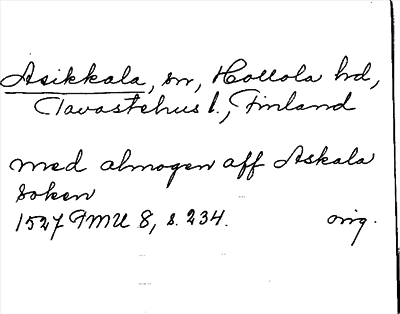 Asikkala, sn, Hollola hd,
Tavastehus l., Finland
med almogen aff Askala
soken
1527 FMU 8, s. 234. orig.